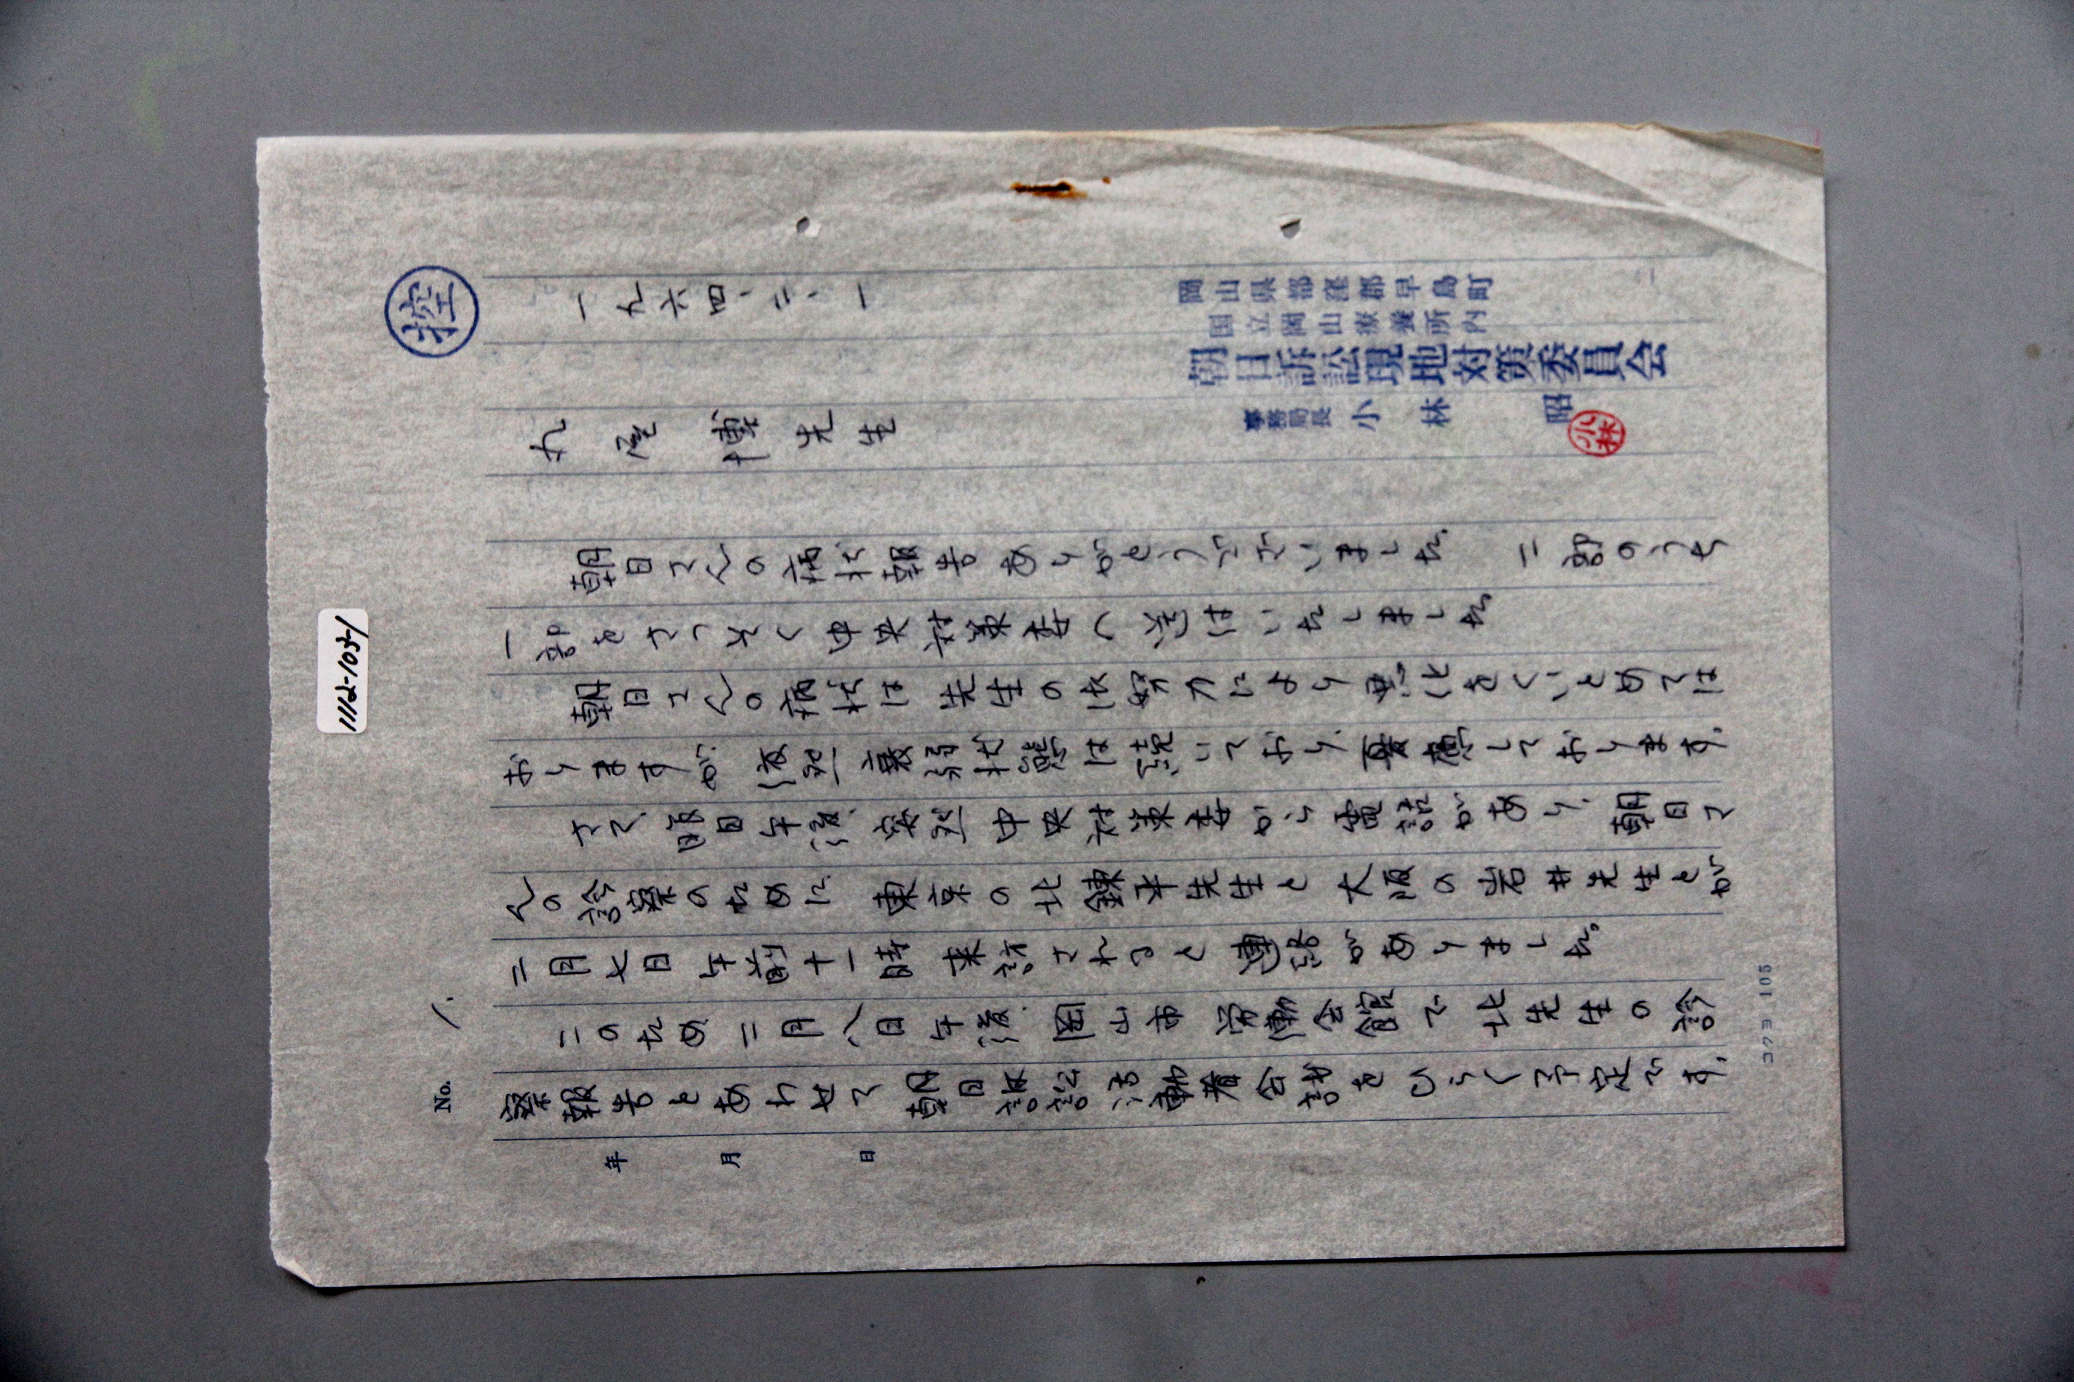 控
一九六四、二、一
岡山県都窪郡早島町
国立岡山療養所内
朝日訴訟現地対策委員会
事務局長 小林 昭
小林
丸屋 博 先生
朝日さんの病状報告ありがとうございました。 二部のうち
一部をさっそく中央対策委へ送付いたしました。
朝日さんの病状は 先生の御努力により悪化をくいとめては
おりますが、依然衰弱状態は続いており、憂慮しております。
さて、昨日午後、突然中央対策委から電話があり、朝日さ
んの診察のために、東京の北錬平先生と 大阪の岩井先生とが
二月七日 午前十一時 来診されると連絡がありました。
このため 二月八日午後、岡山市 労働会館で 北先生の診
察報告をあわせて 朝日訴訟活動者会議をひらく予定です。
No. 1.
年 月 日
コクヨ 105
1112-105-1